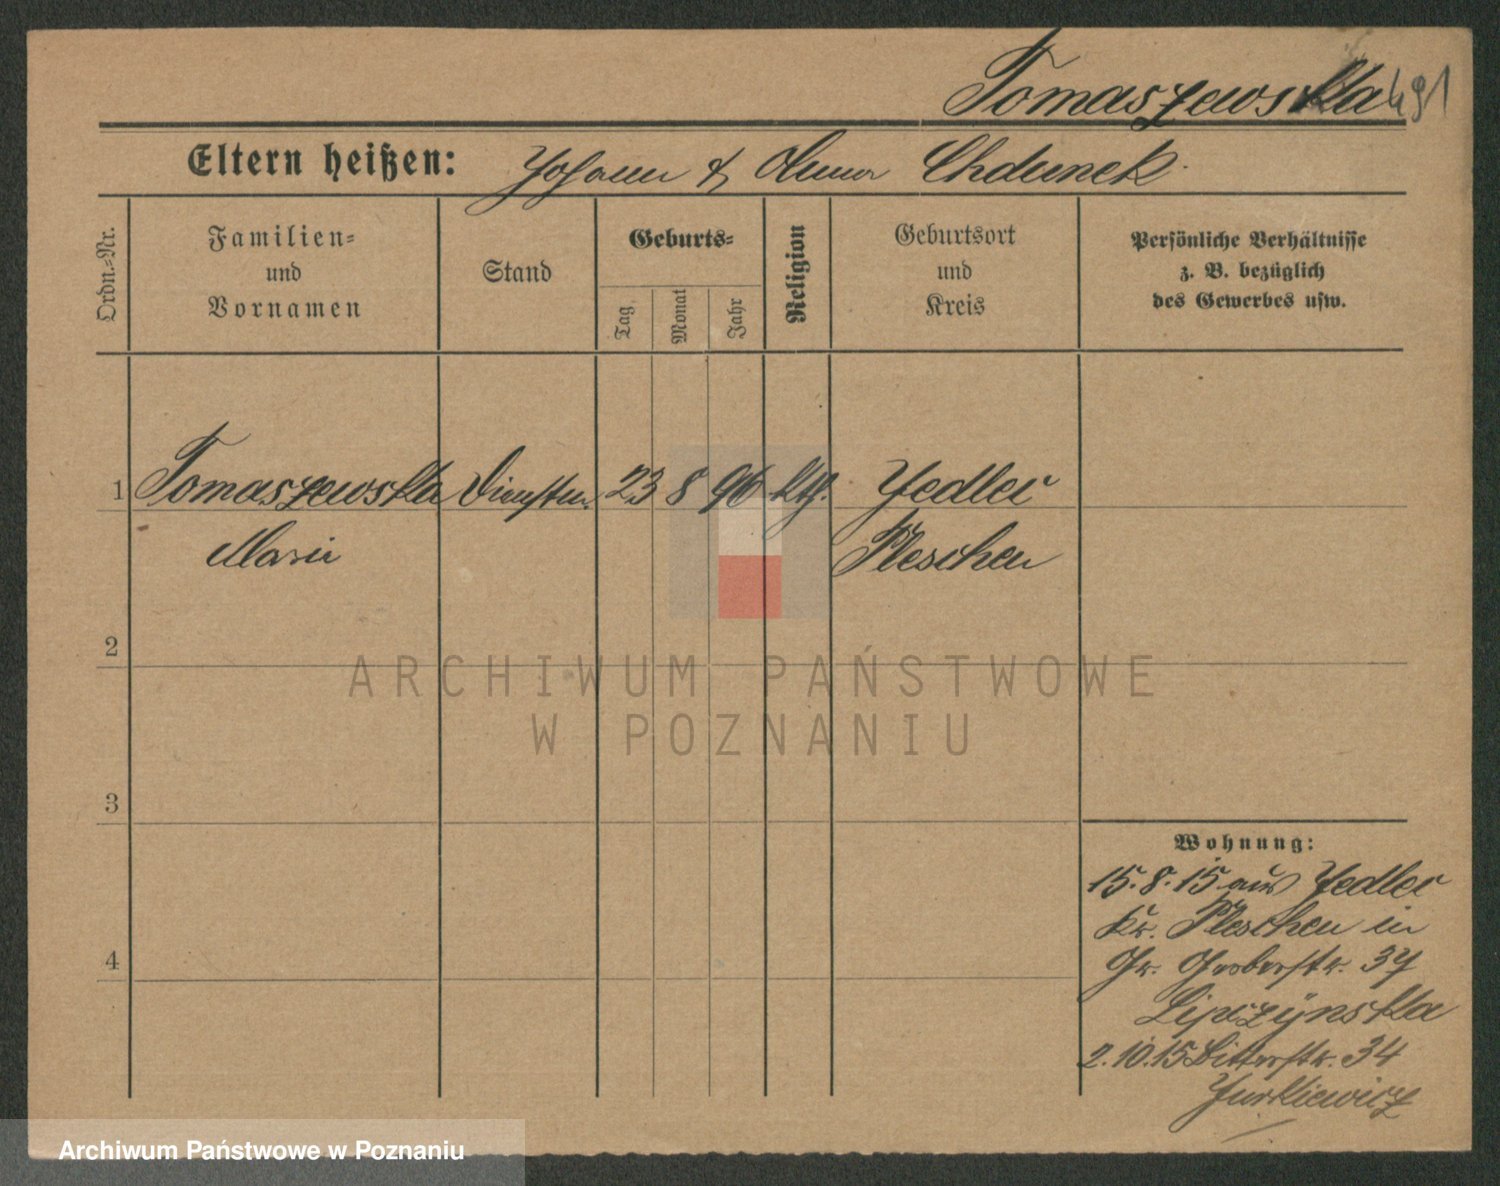 Tomaszewska 491
Eltern heißen: Johann & Anna Chdunek
Ordn.-Nr.
Familien- und Vornamen
Stand
Geburts-
Tag
Monat
Jahr
Religion
Geburtsort und Kreis
Persönliche Verhältnisse
z. B. bezüglich
des Gewerbes usw.
1 Tomaszewska Dienstm. 23 8 96 kth. Jedlec
Marie Pleschen
2
ARCHIWUM PAŃSTWOWE
W POZNANIU
3
Wohnung:
15.8.15 aus Jedlec
Kr. Pleschen in
Gr. Gerberstr. 37
Lipczynska
4
2.10.15 Ritterstr. 34
Jurkiewicz
Archiwum Państwowe w Poznaniu